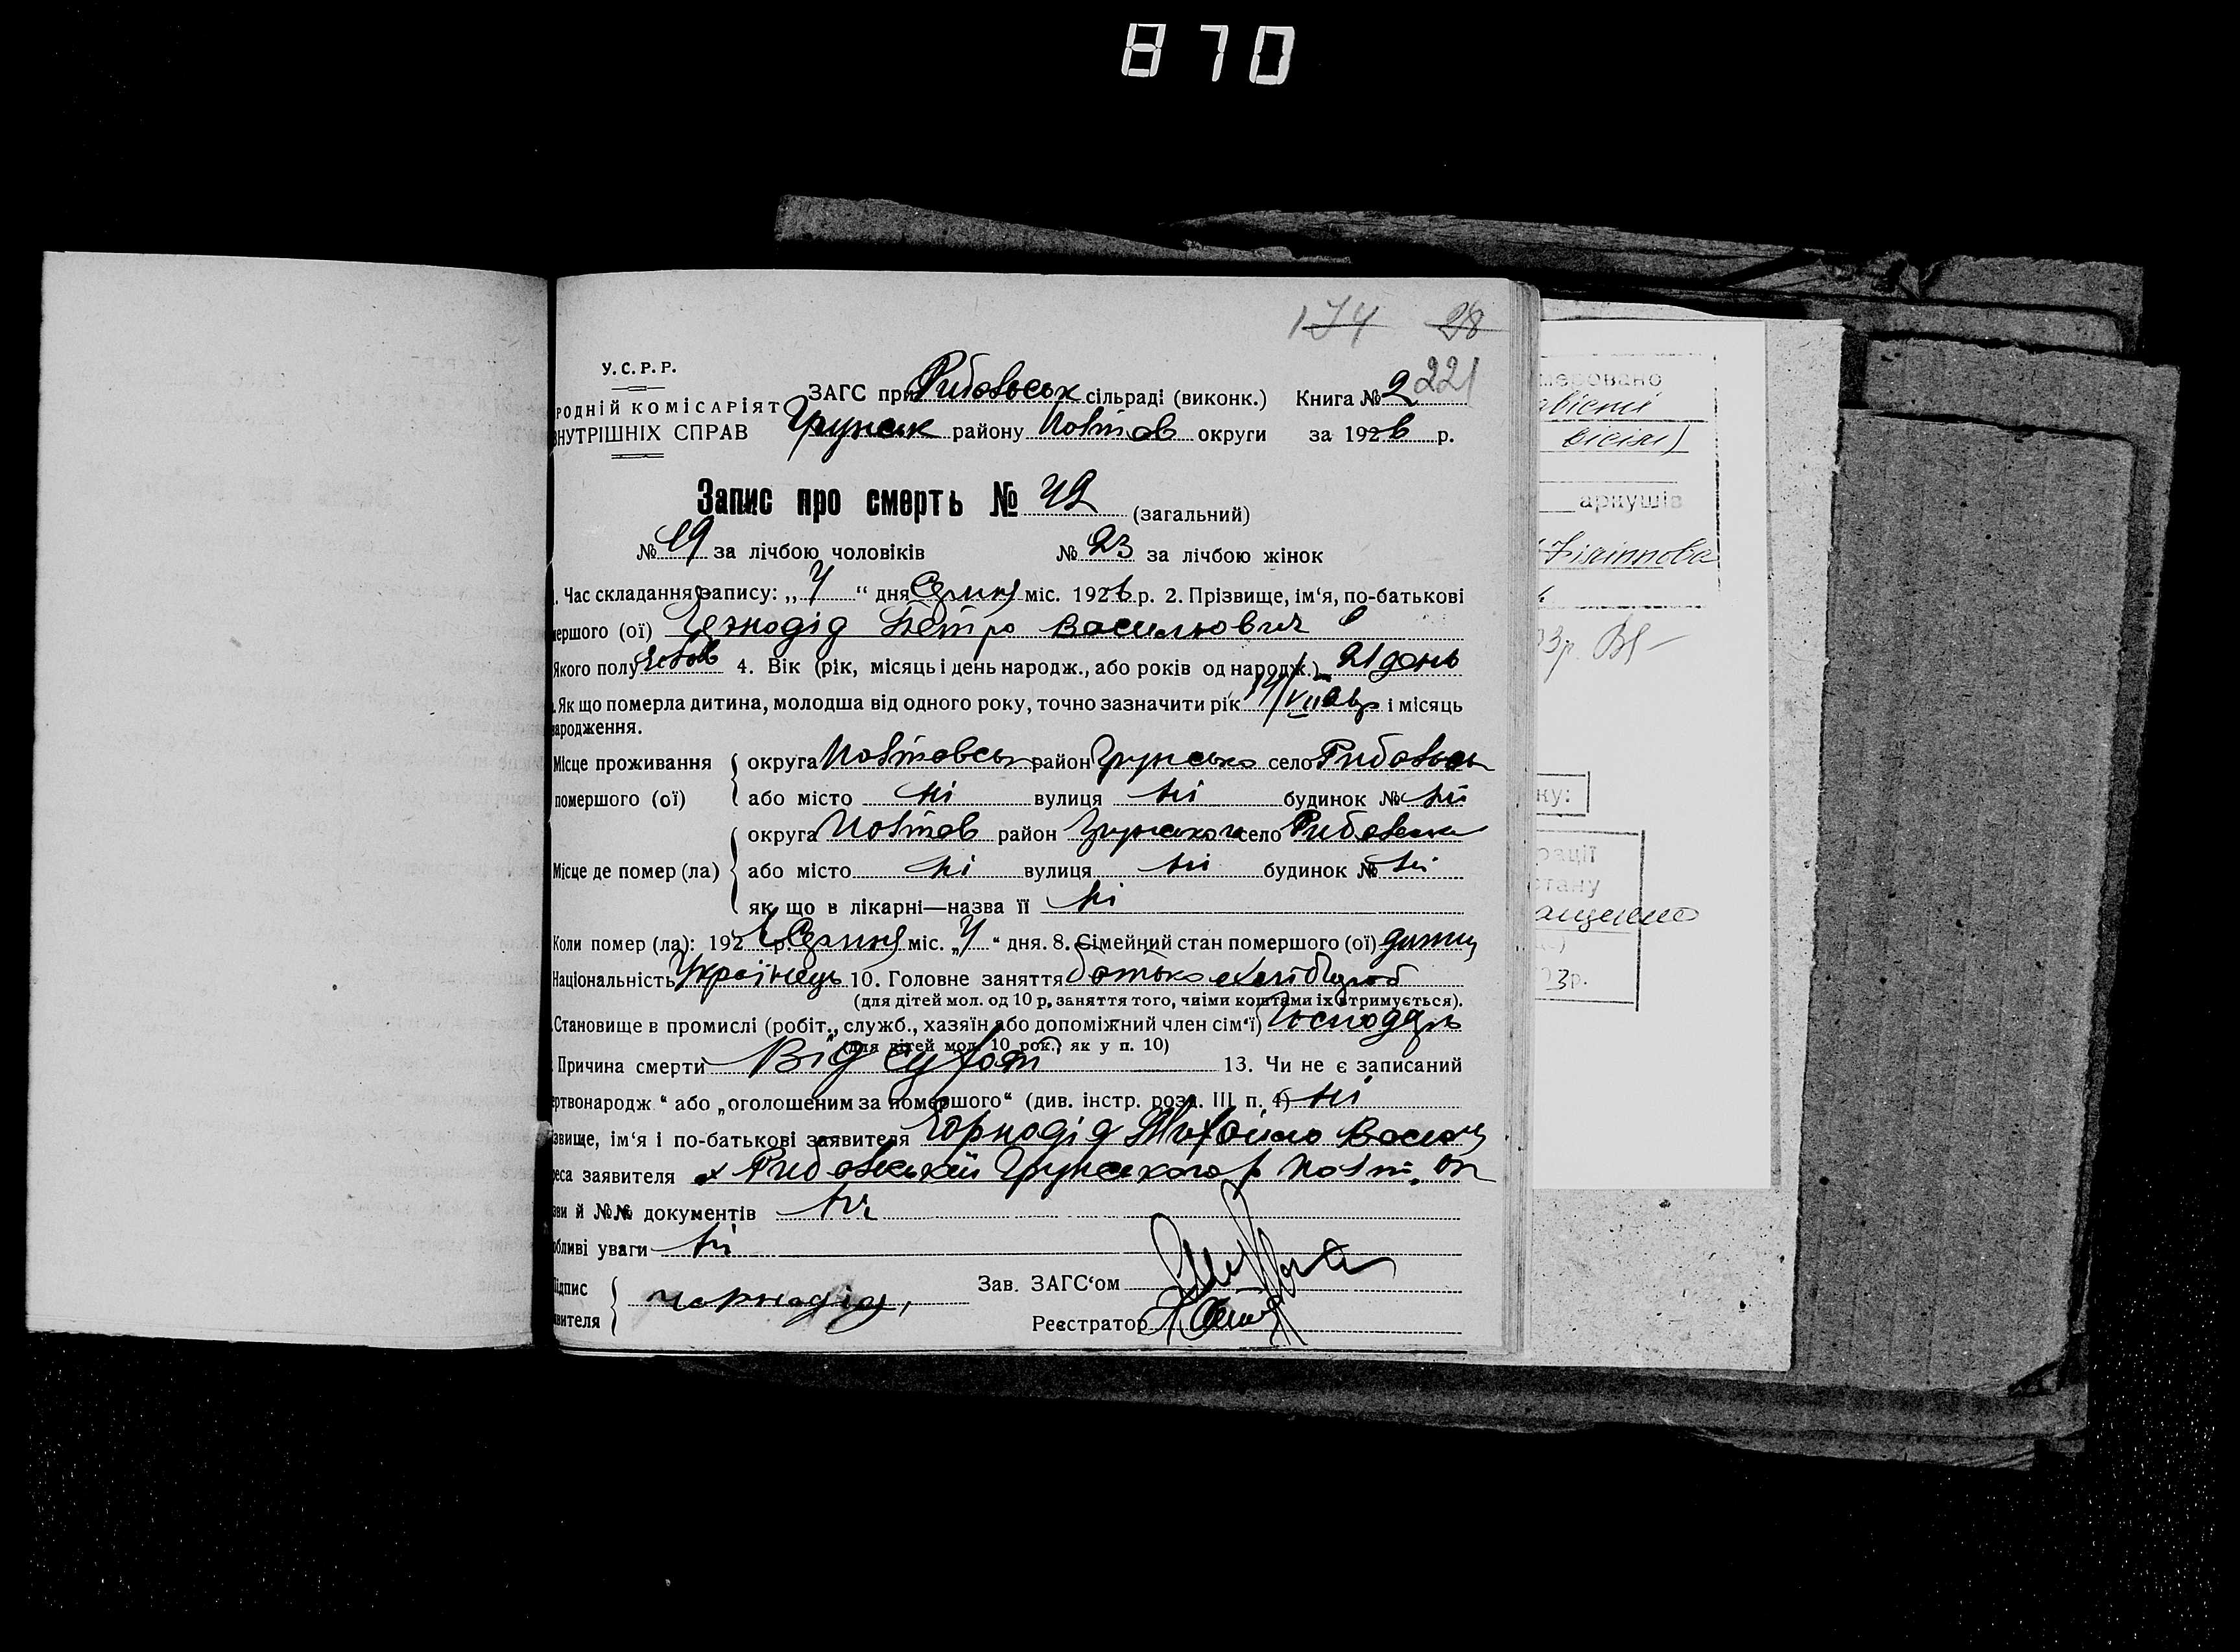 870
174 28
У.С.Р.Р.
ЗАГС при Рибальськ сільраді (виконк.) Книга № 2 221
РОДНІЙ КОМІСАРІЯТ
Грунськ району Полтав округи за 1926 р.
НУТРІШНІХ СПРАВ
Запис про смерть № 42 (загальний)
№ 19 за лічбою чоловіків № 23 за лічбою жінок
. Час складання запису: „ 4 “ дня Серпня міс. 1926 р. 2. Прізвище, ім‘я, по-батькові
мершого (ої) Петро Василювич
Якого полу 4. Вік (рік, місяць і день народж., або років од народж.) 21 день
. Як що померла дитина, молодша від одного року, точно зазначити рік і місяць
ародження.
Місце проживання округа Полтавськ район Грунсько село Рибальськ
помершого (ої) або місто ні вулиця ні будинок № ні
округа Полтав район Грунського село Рибальська
Місце де помер (ла) або місто ні вулиця ні будинок № ні
як що в лікарні—назва її ні
Коли помер (ла): 192 6 р. Серпня міс. „ 4 “ дня. 8. Сімейний стан помершого (ої)
Національність Українець 10. Головне заняття батько хлібороб
(для дітей мол. од 10 р, заняття того, чиїми коштами їх утримується).
Становище в промислі (робіт., служб., хазяїн або допоміжний член сім‘ї) Господарь
(для дітей мол. 10 рок., як у п. 10)
Причина смерти Від сухот 13. Чи не є записаний
ртвонародж “ або „оголошеним за помершого“ (див. інстр. розд. III п. 4) ні
звище, ім‘я і по-батькові заявителя Чорнодід Михайло
еса заявителя х Рибальський Грунського р Полт. ок
зви й №№ документів ні
обливі уваги ні
ідпис Чорнодід, Зав. ЗАГС‘ом
явителя Реєстратор
меровано
вісім)
аркушів
23р.